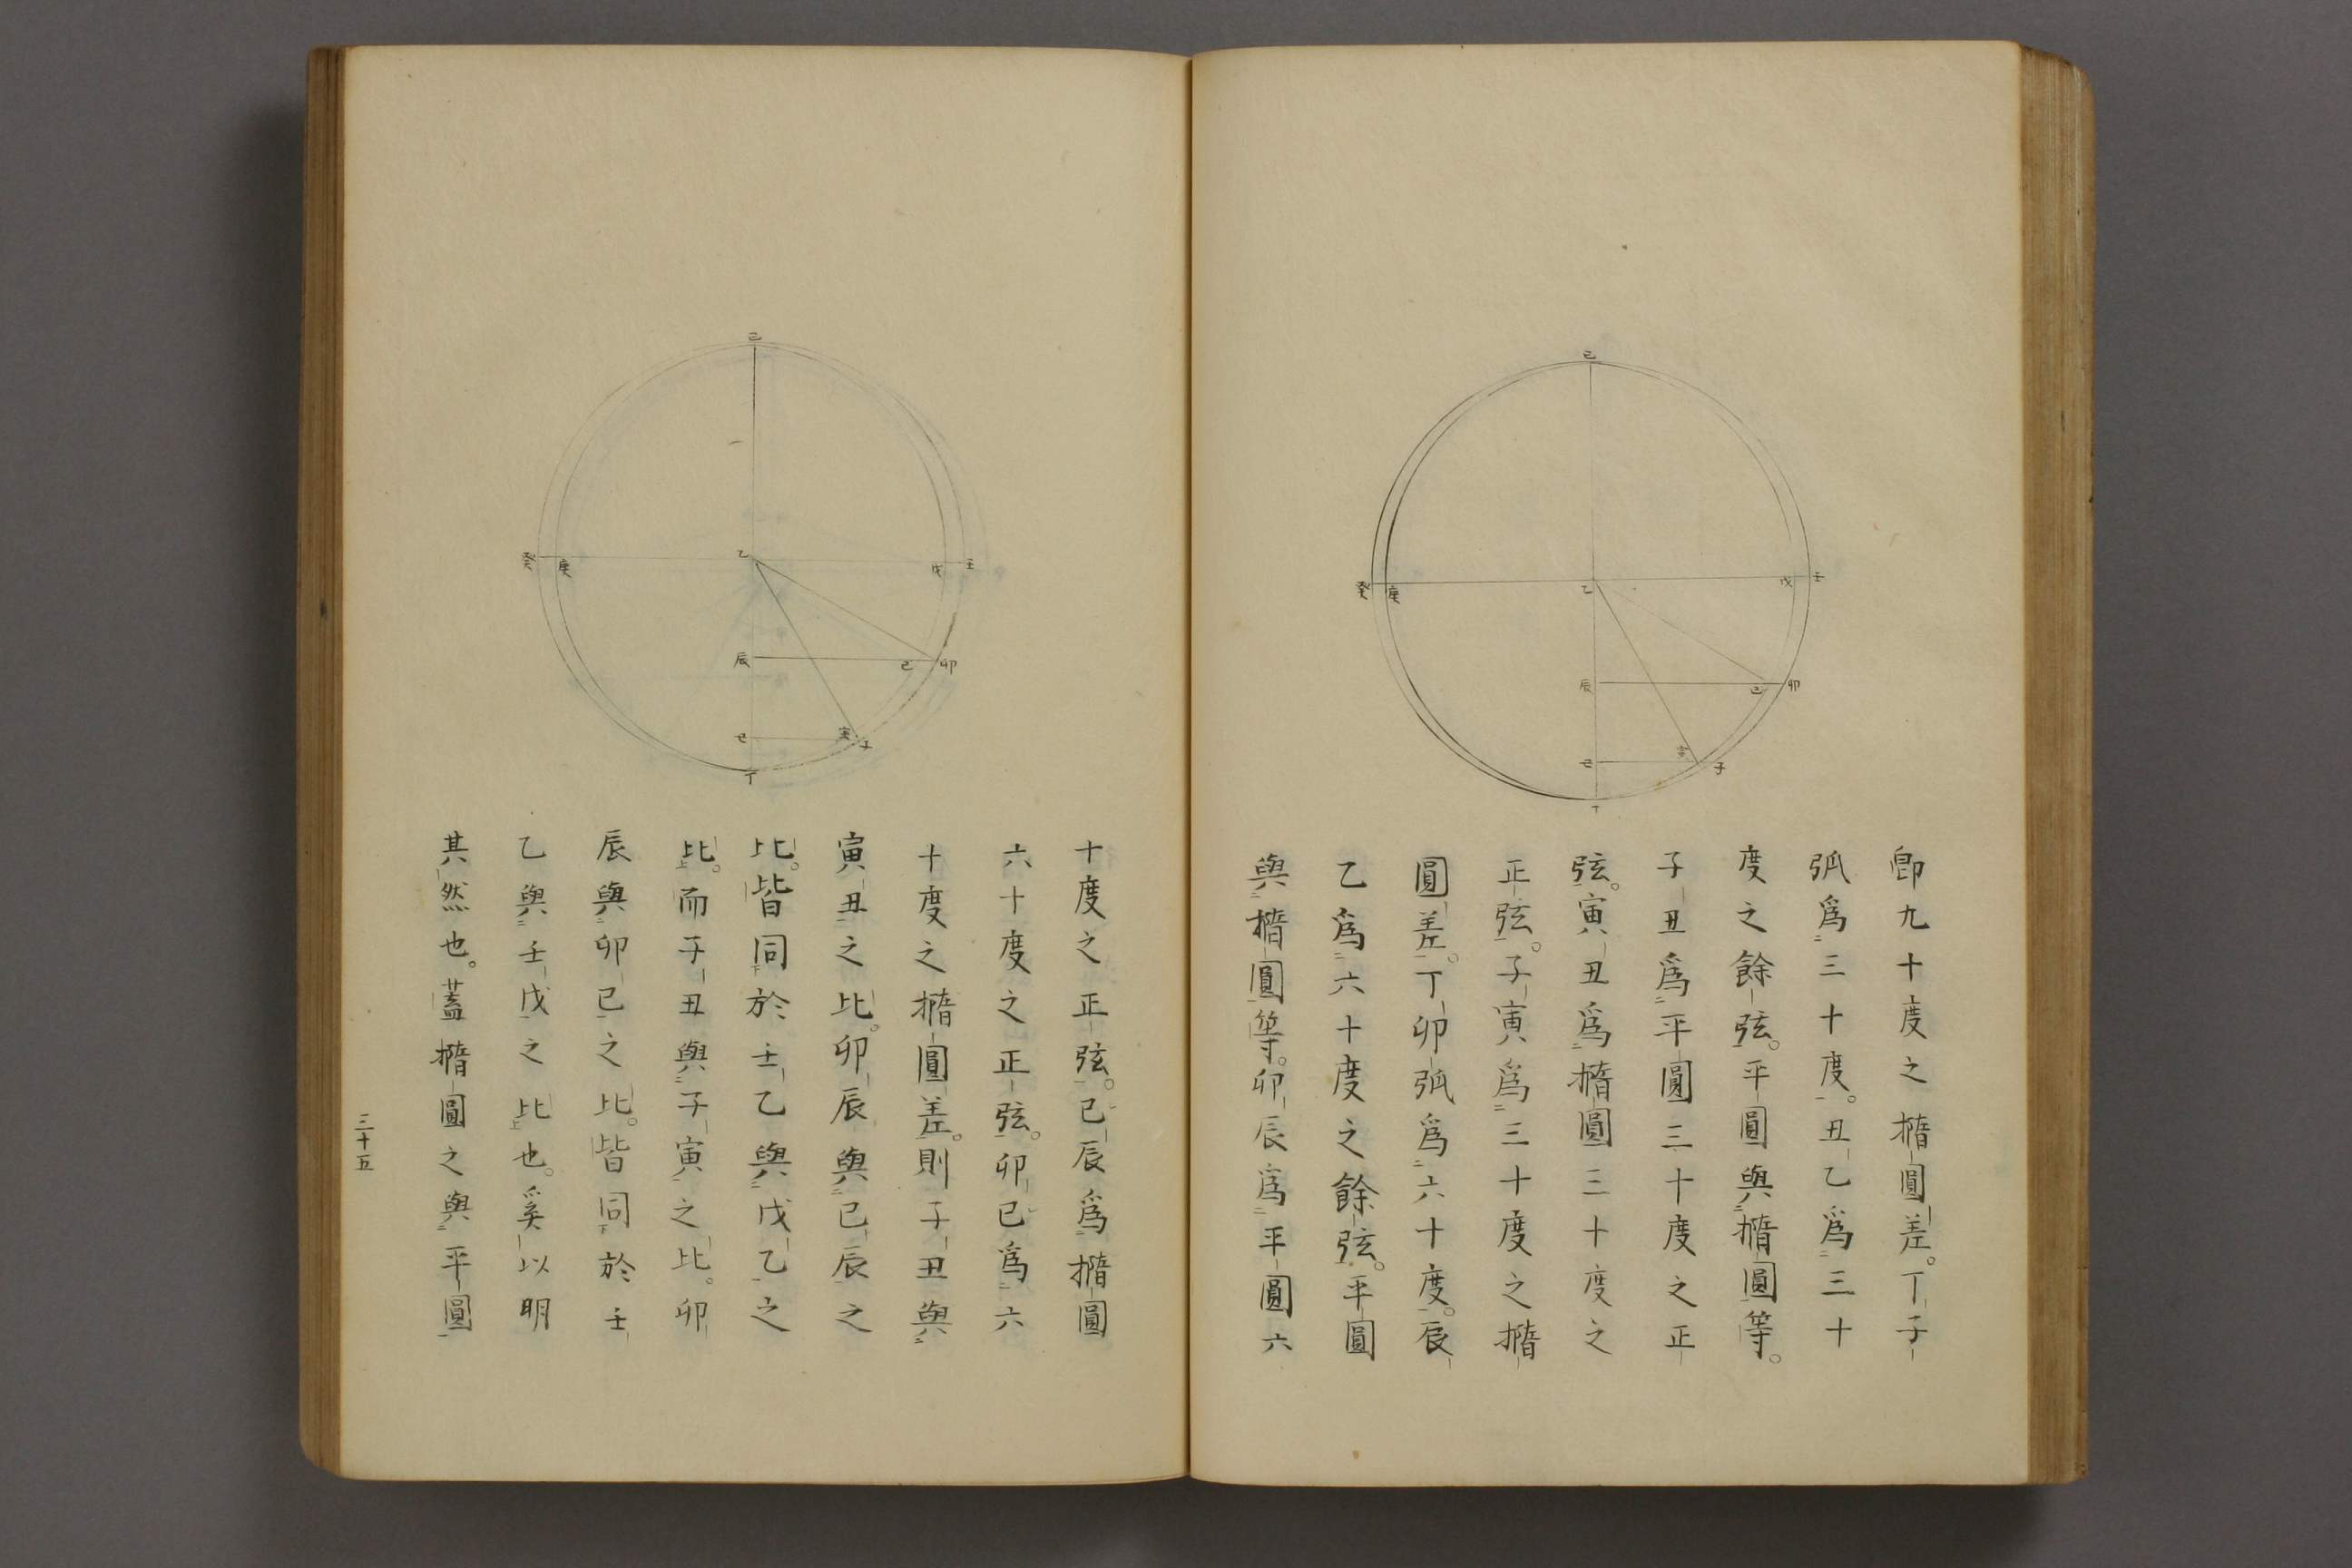 卽九十度之橢圓差。丁子
弧爲三十度。丑乙爲三十
度之餘弦。平圓與橢圓等。
子丑爲平圓三十度之正
弦。寅丑爲橢圓三十度之
正弦。子寅爲三十度之橢
圓差。丁卯弧爲六十度。辰
乙爲六十度之餘弦。平圓
與橢圓等。卯辰爲平圓六
己
癸
庚
乙
戊
壬
辰
巳
卯
丑
寅
子
丁
十度之正弦。巳辰爲橢圓
六十度之正弦。卯巳爲六
十度之橢圓差。則子丑與
寅丑之比。卯辰與巳辰之
比。皆同於壬乙與戊乙之
比。而子丑與子寅之比。卯
辰與卯巳之比。皆同於壬
乙與壬戊之比也。奚以明
其然也。蓋橢圓之與平圓
己
癸
庚
乙
戊
壬
辰
巳
卯
丑
寅
子
丁
三十五